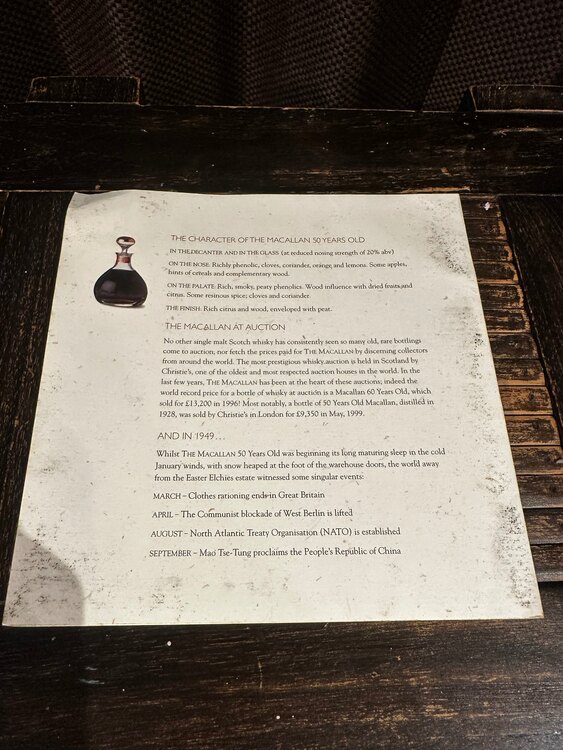 THE CHARACTER OF THE MACALLAN 50 YEARS OLD
IN THE DECANTER AND IN THE GLASS (at reduced nosing strength of 20% abv)
ON THE NOSE: Richly phenolic, cloves, coriander, orange and lemons. Some apples,
hints of cereals and complementary wood.
ON THE PALATE: Rich, smoky, peaty phenolics. Wood influence with dried fruits and
citrus. Some resinous spice; cloves and coriander.
THE FINISH: Rich citrus and wood, enveloped with peat.
THE MACALLAN AT AUCTION
No other single malt Scotch whisky has consistently seen so many old, rare bottlings
come to auction, nor fetch the prices paid for THE MACALLAN by discerning collectors
from around the world. The most prestigious whisky auction is held in Scotland by
Christie's, one of the oldest and most respected auction houses in the world. In the
last few years, THE MACALLAN has been at the heart of these auctions; indeed the
world record price for a bottle of whisky at auction is a Macallan 60 Years Old, which
sold for £13,200 in 1996! Most notably, a bottle of 50 Years Old Macallan, distilled in
1928, was sold by Christie's in London for £9,350 in May, 1999.
AND IN 1949...
Whilst THE MACALLAN 50 Years Old was beginning its long maturing sleep in the cold
January winds, with snow heaped at the foot of the warehouse doors, the world away
from the Easter Elchies estate witnessed some singular events:
MARCH – Clothes rationing ends in Great Britain
APRIL – The Communist blockade of West Berlin is lifted
AUGUST – North Atlantic Treaty Organisation (NATO) is established
SEPTEMBER – Mao Tse-Tung proclaims the People's Republic of China